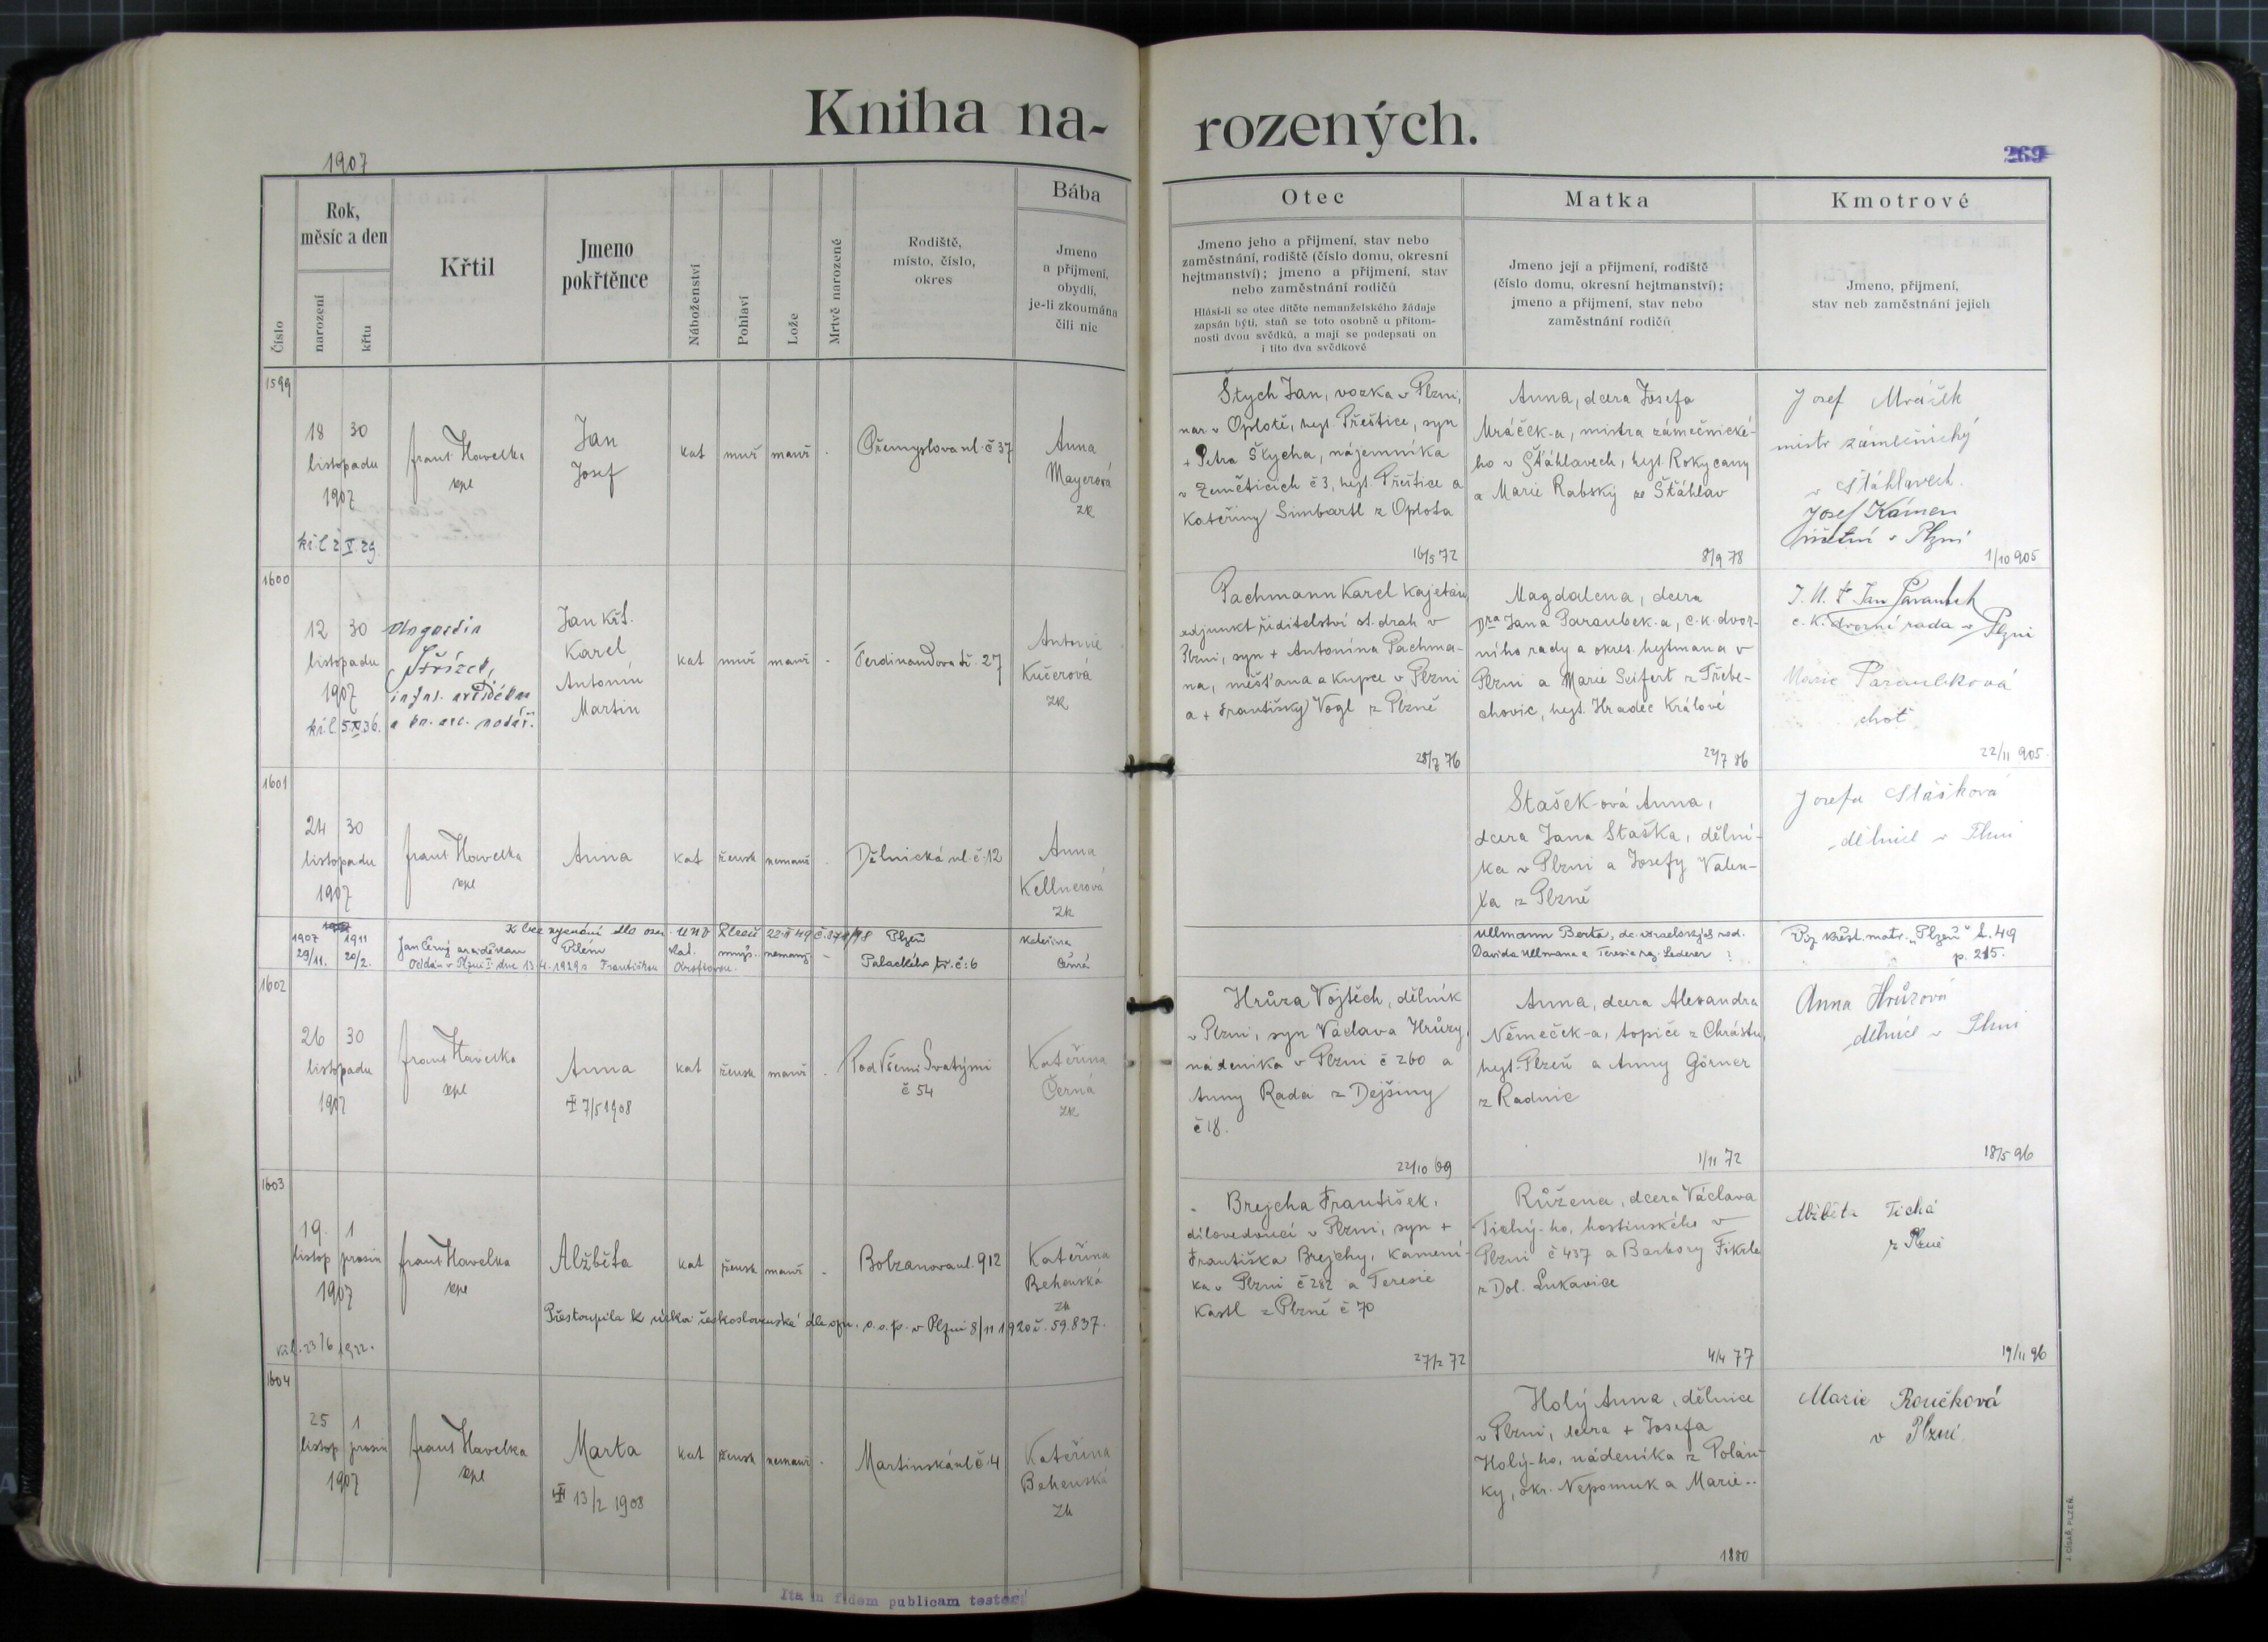 Kniha na-
rozených.
269
1907
Číslo
Rok,
měsíc a den
narození
křtu
Křtil
Jmeno
pokřtěnce
Náboženství
Pohlaví
Lože
Mrtvě narozené
Rodiště,
místo, číslo,
okres
Bába
Jmeno
a příjmení,
obydlí,
je-li zkoumána
čili nic
Otec
Jmeno jeho a příjmení, stav nebo
zaměstnání, rodiště (číslo domu, okresní
hejtmanství); jmeno a příjmení, stav
nebo zaměstnání rodičů
Hlásí-li se otec dítěte nemanželského žádaje
zapsán býti, staň se toto osobně u přítom-
nosti dvou svědků, a mají se podepsati on
i tito dva svědkové
Matka
Jmeno její a příjmení, rodiště
(číslo domu, okresní hejtmanství);
jmeno a příjmení, stav nebo
zaměstnání rodičů
Kmotrové
Jmeno, příjmení,
stav neb zaměstnání jejich
1599
18 30
listopadu
1907
kř. l. 2 V. 29.
Frant Havelka
kpl
Jan
Josef
kat
muž
manž
-
Přemyslova ul. č 37
Anna
Mayerová
zk
Štych Jan, vozka v Plzni,
nar v Oplotě, hejt. Přeštice, syn
+ Petra Štycha, nájemníka
v Zeměticích č 3, hejt. Přeštice a
Kateřiny Simbartl z Oplota
16/5 72
Anna, dcera Josefa
Mráček-a, mistra zámečnické-
ho v Šťáhlavech, hejt. Rokycany
a Marie Rabský ze Šťáhlav
8/9 78
Josef Mráček
mistr zámečnický
v Šťáhlavech.
Josef Kámen
v Plzni
1/10 905
1600
12 30
listopadu
1907
kř. l. 5. XI. 36.
Střízek,
a bn. not. notář.
Jan Kř.
Karel
Antonín
Martin
kat
muž
manž
-
Ferdinandova tř. 27
Antonie
Kučerová
zk
Pachmann Karel Kajetán,
adjunkt ředitelství st. drah v
Plzni, syn + Antonína Pachma-
na, měšťana a kupce v Plzni
a + Františky Vogl z Plzně
28/7 76
Magdalena, dcera
Dra Jana Paraubek-a, c. k. dvor-
ního rady a okres. hejtmana v
Plzni a Marie Seifert z Třebe-
chovic, hejt. Hradec Králové
22/7 86
J. U. Dr Jan Paraubek
c. k. dvorní rada v Plzni
Marie Paraubková
choť
22/11 905.
1601
24 30
listopadu
1907
Frant Havelka
kpl
Anna
kat
žensk
nemanž
-
Dělnická ul. č. 12
Anna
Kellnerová
zk
Stašek-ová Anna,
dcera Jana Staška, dělní-
ka v Plzni a Josefy Valen-
ta z Plzně
Josefa Stašková
dělnice v Plzni
K bez vyznání dle ozn. UNV Plzeň
1907 1911
29/11. 20/2.
Jan Černý arciděkan
Vilém
kat.
muž.
nemanž.
-
Plzeň
Palackého tř. č. 6
Kateřina
Černá
Oddán v Plzni I dne 13.4.1929 s Františkou
Ullmann Berta, dc. israelských rod.
Davida Ullmana a Teresie roz. Lederer ?
Viz křest. matr. „Plzeň" t. 49
p. 215.
1602
26 30
listopadu
1907
Frant Havelka
kpl
Anna
✝ 7/5 1908
kat
žensk
manž
-
Pod Všemi Svatými
č 54
Kateřina
Černá
zk
Hrůza Vojtěch, dělník
v Plzni, syn Václava Hrůzy,
nádeníka v Plzni č 260 a
Anny Rada z Dejšiny
č 18.
22/10 69
Anna, dcera Alexandra
Němeček-a, topiče z Chrástu,
hejt. Plzeň a Anny Görner
z Radnic
1/11 72
Anna Hrůzová
dělnice v Plzni
18/5 96
1603
19. 1
listop prosin
1907
kř. l. 23/6 1922.
Frant Havelka
kpl
Alžběta
kat
žensk
manž
-
Bolzanova ul. 912
Kateřina
Behenská
zk
Přestoupila k církvi československé dle ozn. o. s. p. v Plzni 8/11 1920 č. 59.837.
Brejcha František,
dílovedoucí v Plzni, syn +
Františka Brejchy, kamení-
ka v Plzni č 282 a Teresie
Kastl z Plzně č 70
27/2 72
Růžena, dcera Václava
Tichý-ho, hostinského v
Plzni č 437 a Barbory Fikrle
z Dol. Lukavice
4/4 77
Alžběta Tichá
z Plzně
19/11 96
1604
25 1
listop prosin
1907
Frant Havelka
kpl
Marta
✝ 13/2 1908
kat
žensk
nemanž
-
Martinská ul č. 4
Kateřina
Behenská
zk
Holý Anna, dělnice
v Plzni, dcera + Josefa
Holý-ho, nádeníka z Polán-
ky, okr. Nepomuk a Marie..
1880
Marie Roučková
v Plzni
Ita in fidem publicam testor!
J. CÍSAŘ, PLZEŇ.